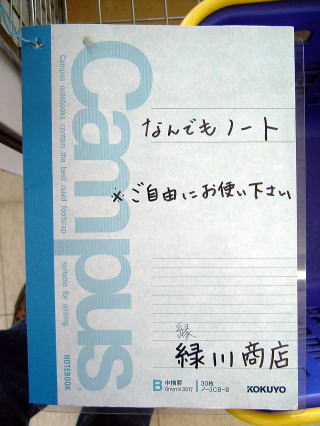 Campus
Campus notebooks contain the best ruled foolscap
suitable for writing.
NOTEBOOK
なんでもノート
※ご自由にお使い下さい
緑
緑川商店
B 中横罫 30枚
6mm×35行 ノ-3CB-B
KOKUYO